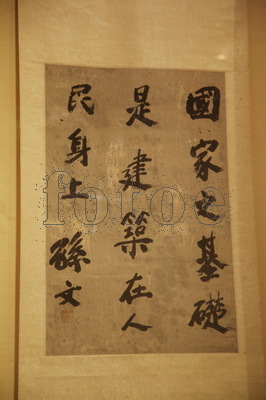 國家之基礎
是建築在人
民身上 孫文
fotoe